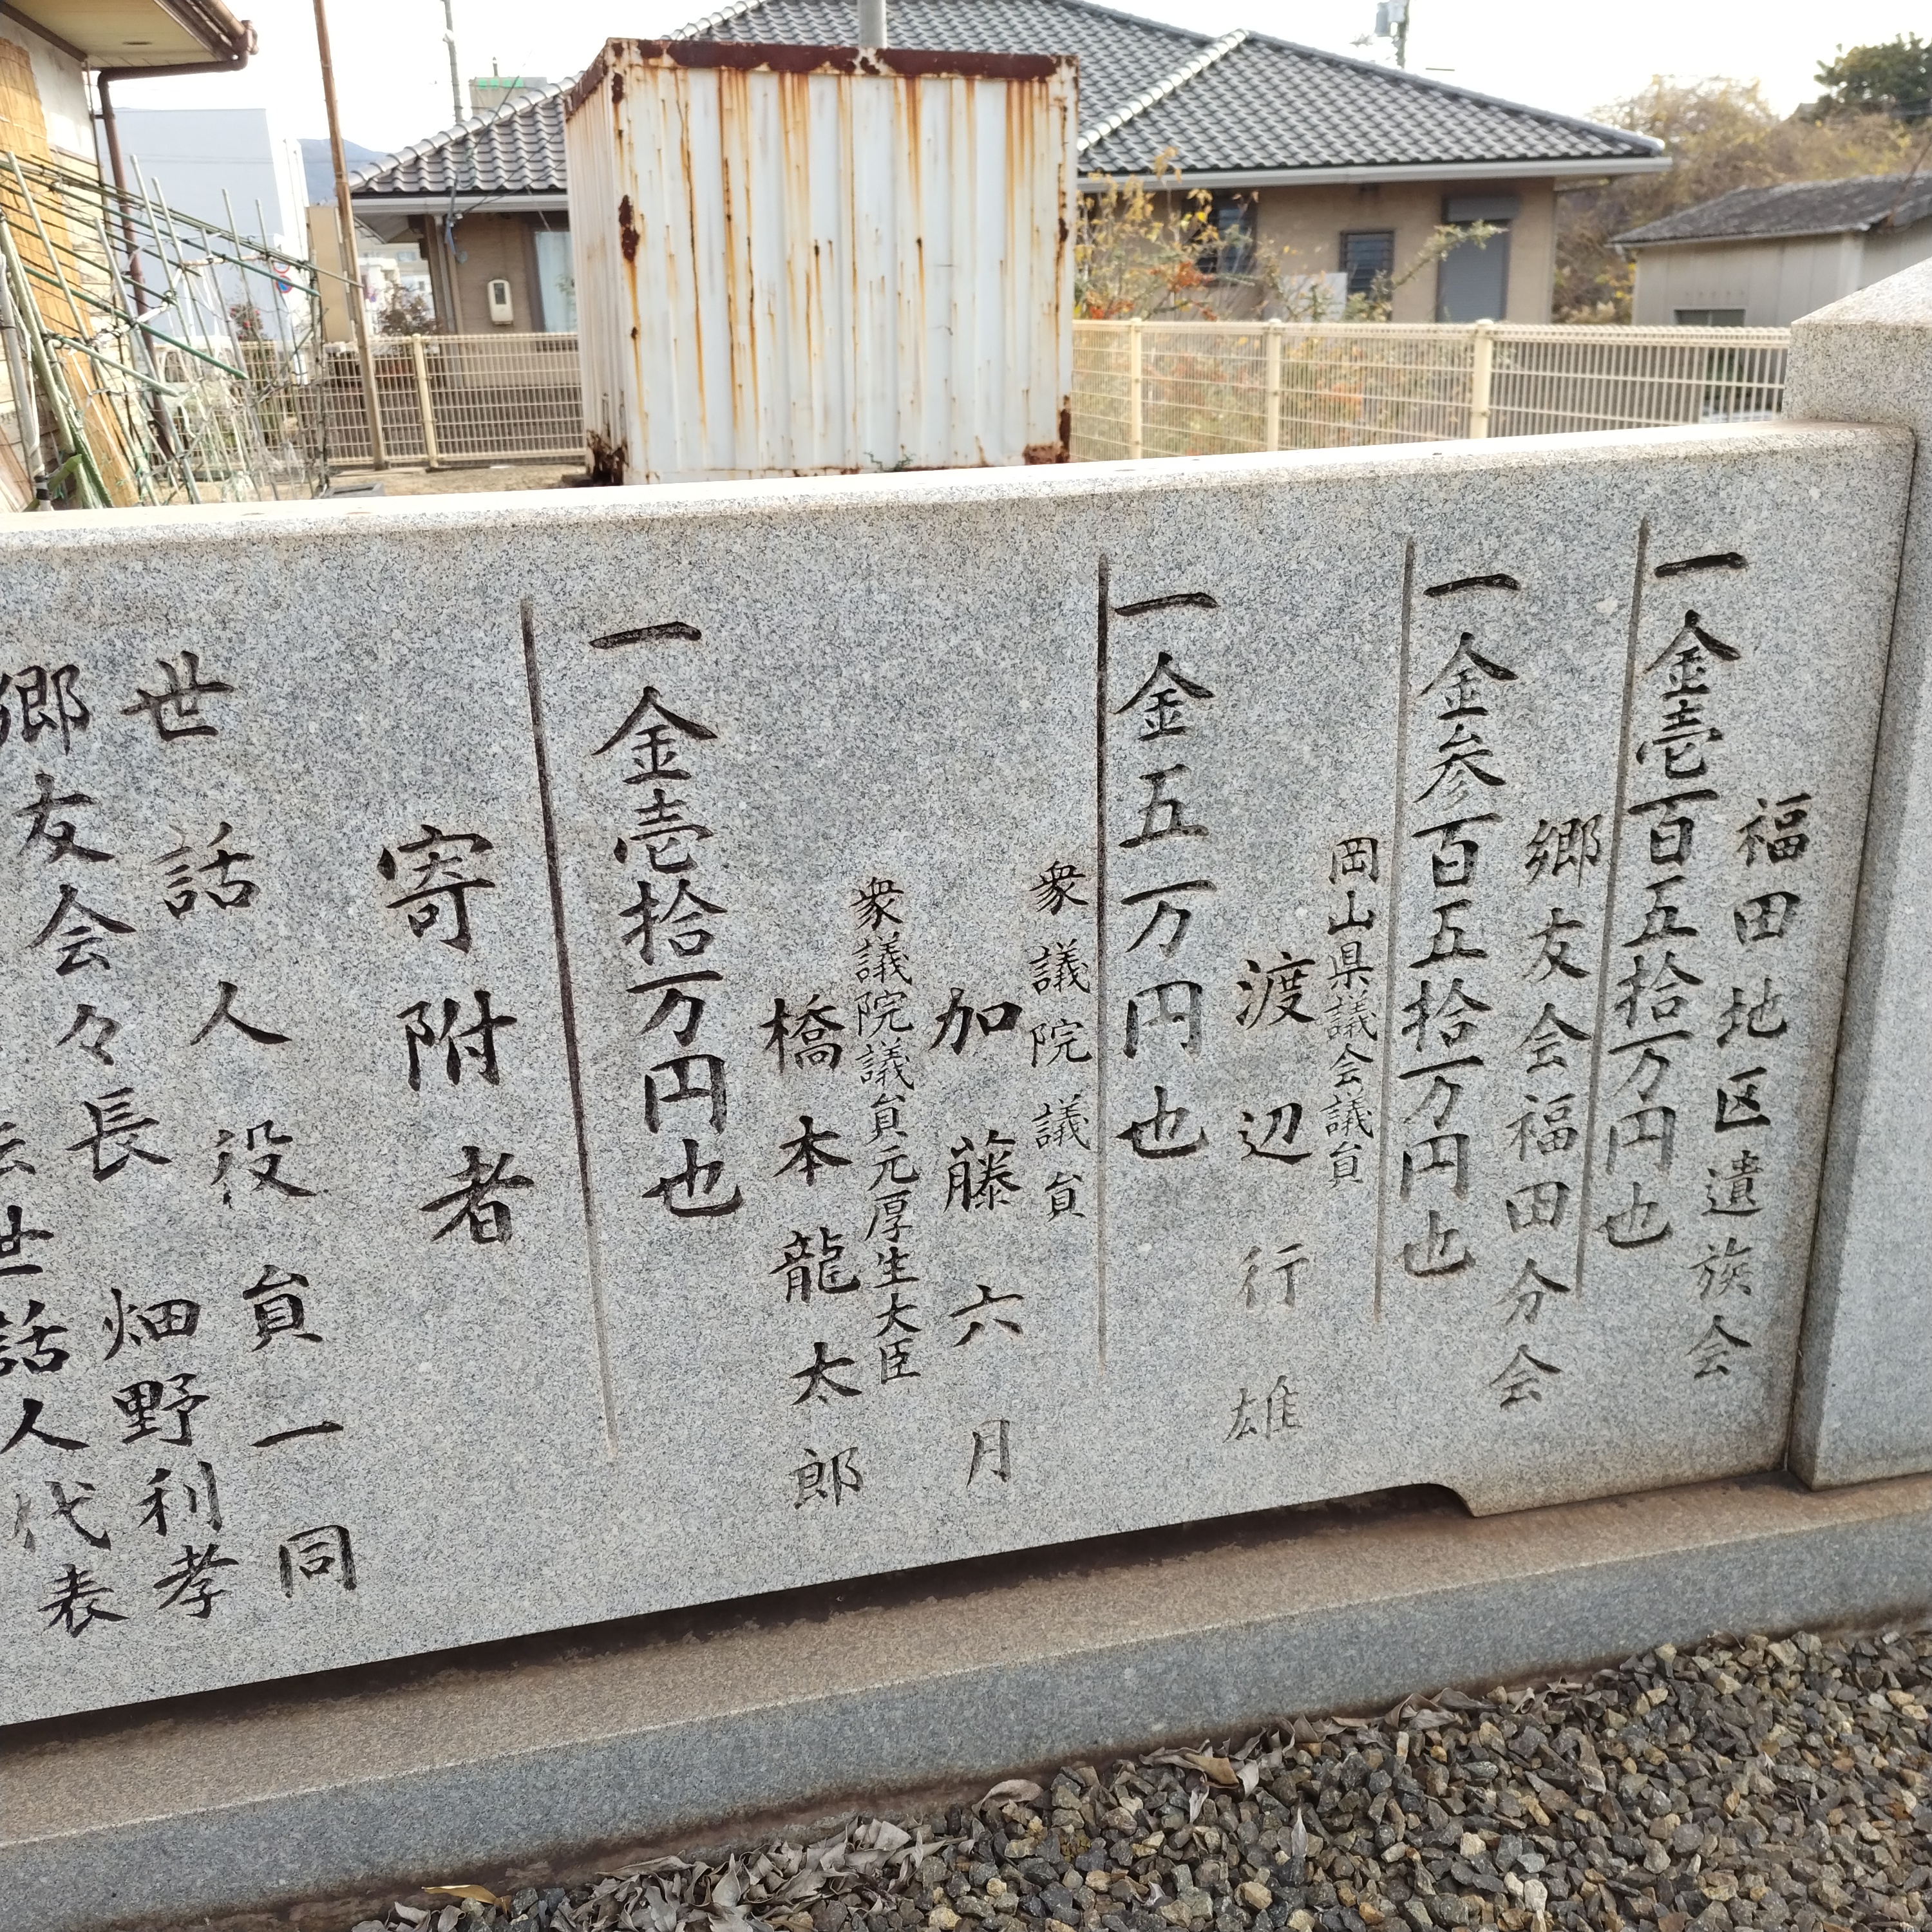 福田地区遺族会
一金壱百五拾万円也
郷友会福田分会
一金参百五拾万円也
岡山県議会議員
渡辺行雄
一金五万円也
衆議院議員
加藤六月
衆議院議員元厚生大臣
橋本龍太郎
一金壱拾万円也
寄附者
世話人役員一同
畑野利孝
郷友会々長
世話人代表